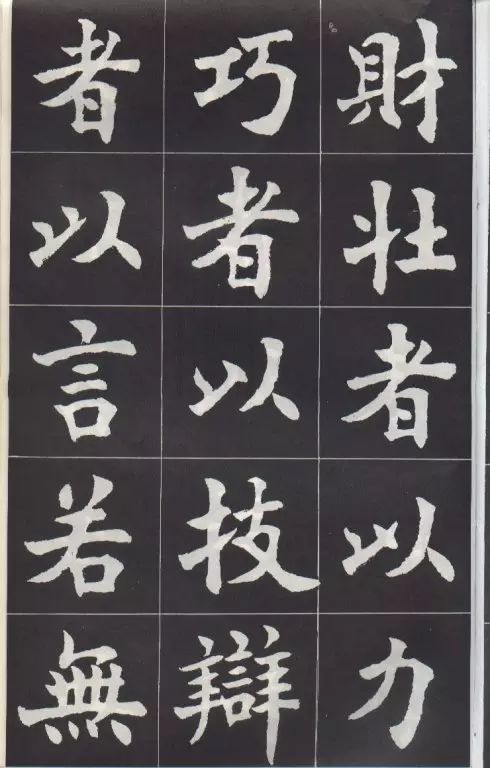 財壯者以力
巧者以技辯
者以言若無